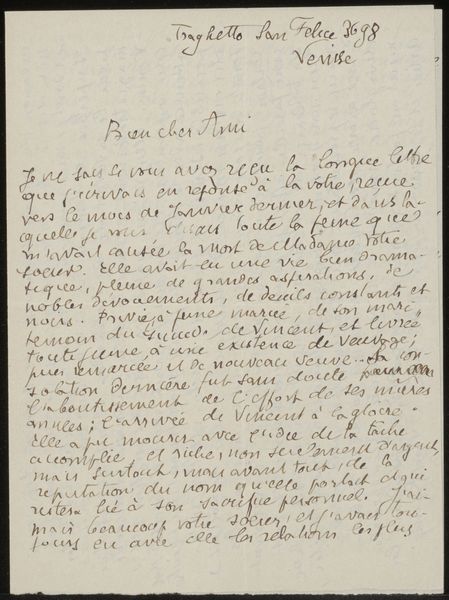 Traghetto San Felice 3698
Venise
Bien cher Ami
Je ne sais si vous avez reçu la longue lettre
que j'écrivais en réponse à la votre, reçue
vers le mois de Janvier dernier, et dans la-
quelle je vous disais toute la peine que
m'avait causée la mort de Madame votre
soeur. Elle avait eu une vie bien drama-
tique, pleine de grandes aspirations, de
nobles dévouements, de deuils constants et
noirs. Privée, à peine mariée, de son mari
témoin du de Vincent, et livrée
toute jeune à une existence de veuvage;
puis remariée et de nouveau veuve. Sa con-
solation dernière fut sans doute
l'aboutissement de l'effort de ses mûres
années; l'arrivée de Vincent à la gloire.
Elle a pu mourir avec l'idée de la tâche
accomplie, et riche, non seulement d'argent,
mais surtout, mais avant tout, de la
réputation du nom qu'elle portait et qui
restera lié à son sacrifice personnel. J'ai-
mais beaucoup votre soeur, et j'avais tou-
jours eu avec elle les relations les plus